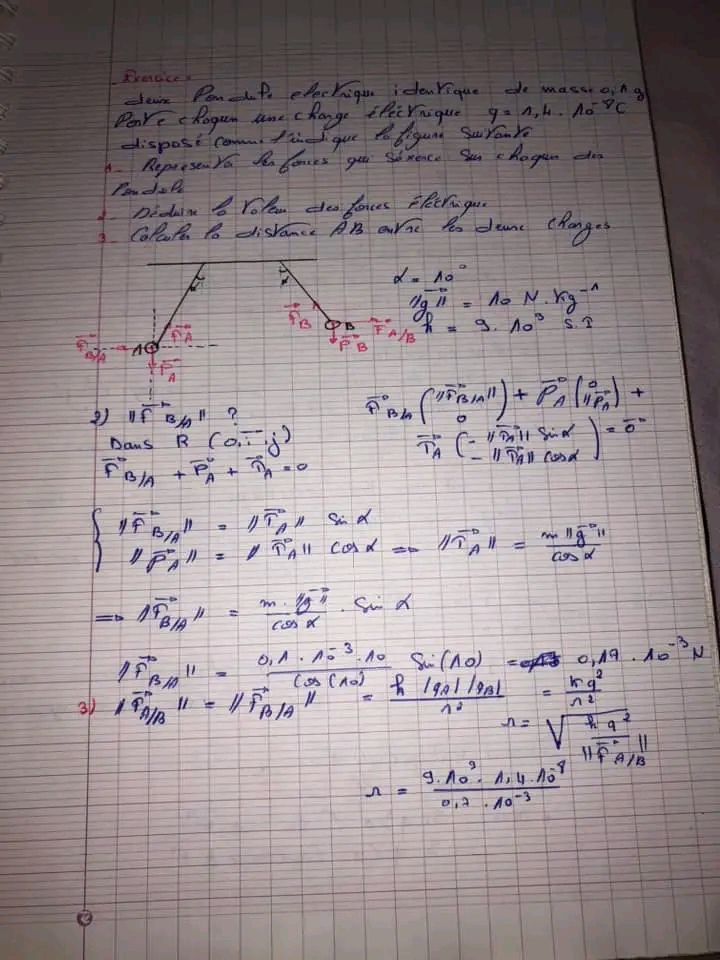 Exercice :
deux Pendule electrique identique de masse 0,1 g
Porte chaqun une charge éléctrique q = 1,4 . 10⁻⁸ C
disposé comme l'indique la figure suivante
1_ Representer les forces qui s'éxerce sur chaqun des
Pendule
2_ Déduire la valeur des forces éléctrique
3_ Calculer la distance AB entre les deux charges
α = 10°
||g⃗|| = 10 N. Kg⁻¹
k = 9. 10⁹ S.I
α α
T⃗_A T⃗_B
F⃗_B/A A B F⃗_A/B
P⃗_A P⃗_B
2) ||F⃗_B/A|| ?
Dans R (O, i⃗, j⃗)
F⃗_B/A + P⃗_A + T⃗_A = 0
F⃗_B/A (||F⃗_B/A|| 0) + P⃗_A (0 ||P⃗_A||) +
T⃗_A (- ||T⃗_A|| sinα - ||T⃗_A|| cosα) = 0⃗
{ ||F⃗_B/A|| = ||T⃗_A|| Sin α
||P⃗_A|| = ||T⃗_A|| cos α => ||T⃗_A|| = m ||g⃗|| / cos α
=> ||F⃗_B/A|| = m. ||g⃗|| / cos α . Sin α
||F⃗_B/A|| = 0,1 . 10⁻³ . 10 / cos(10) Sin(10) = 0,17 . 10⁻³ N
3) ||F⃗_A/B|| = ||F⃗_B/A|| = k |q_A| |q_B| / r² = k q² / r²
r = √(k q² / ||F⃗_A/B||)
r = 9. 10⁹ . 1,4 . 10⁻⁸ / 0,7 . 10⁻³